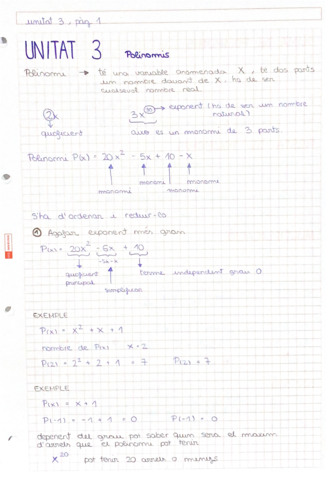 unitat 3, pàg. 1
UNITAT 3 Polinomis
Polinomi → té una variable anomenada X, té dos parts
un nombre davant de X. ha de ser
nombre real
2x 3x exponent (ha de ser un nombre
natural)
quoficient això es un monomi de 3 parts
Polinomi P(x) = 20x² - 5x + 10 - x
monomi monomi monomi monomi
S'ha d'ordenar i reduir-los
① Agafar exponent més gran
P(x) = 20x² - 6x + 10
quoficient principal
simplifiquem
terme independent grau 0
EXEMPLE
P(x) = x² + x + 1
nombre de P(x) x = 2
P(2) = 2² + 2 + 1 = 7 P(2) = 7
EXEMPLE
P(x) = x + 1
P(-1) = -1 + 1 = 0 P(-1) = 0
depenent del grau per saber quin serà el màxim
d'arrels que el polinomi pot tenir
x²⁰ pot tenir 20 arrels o menys